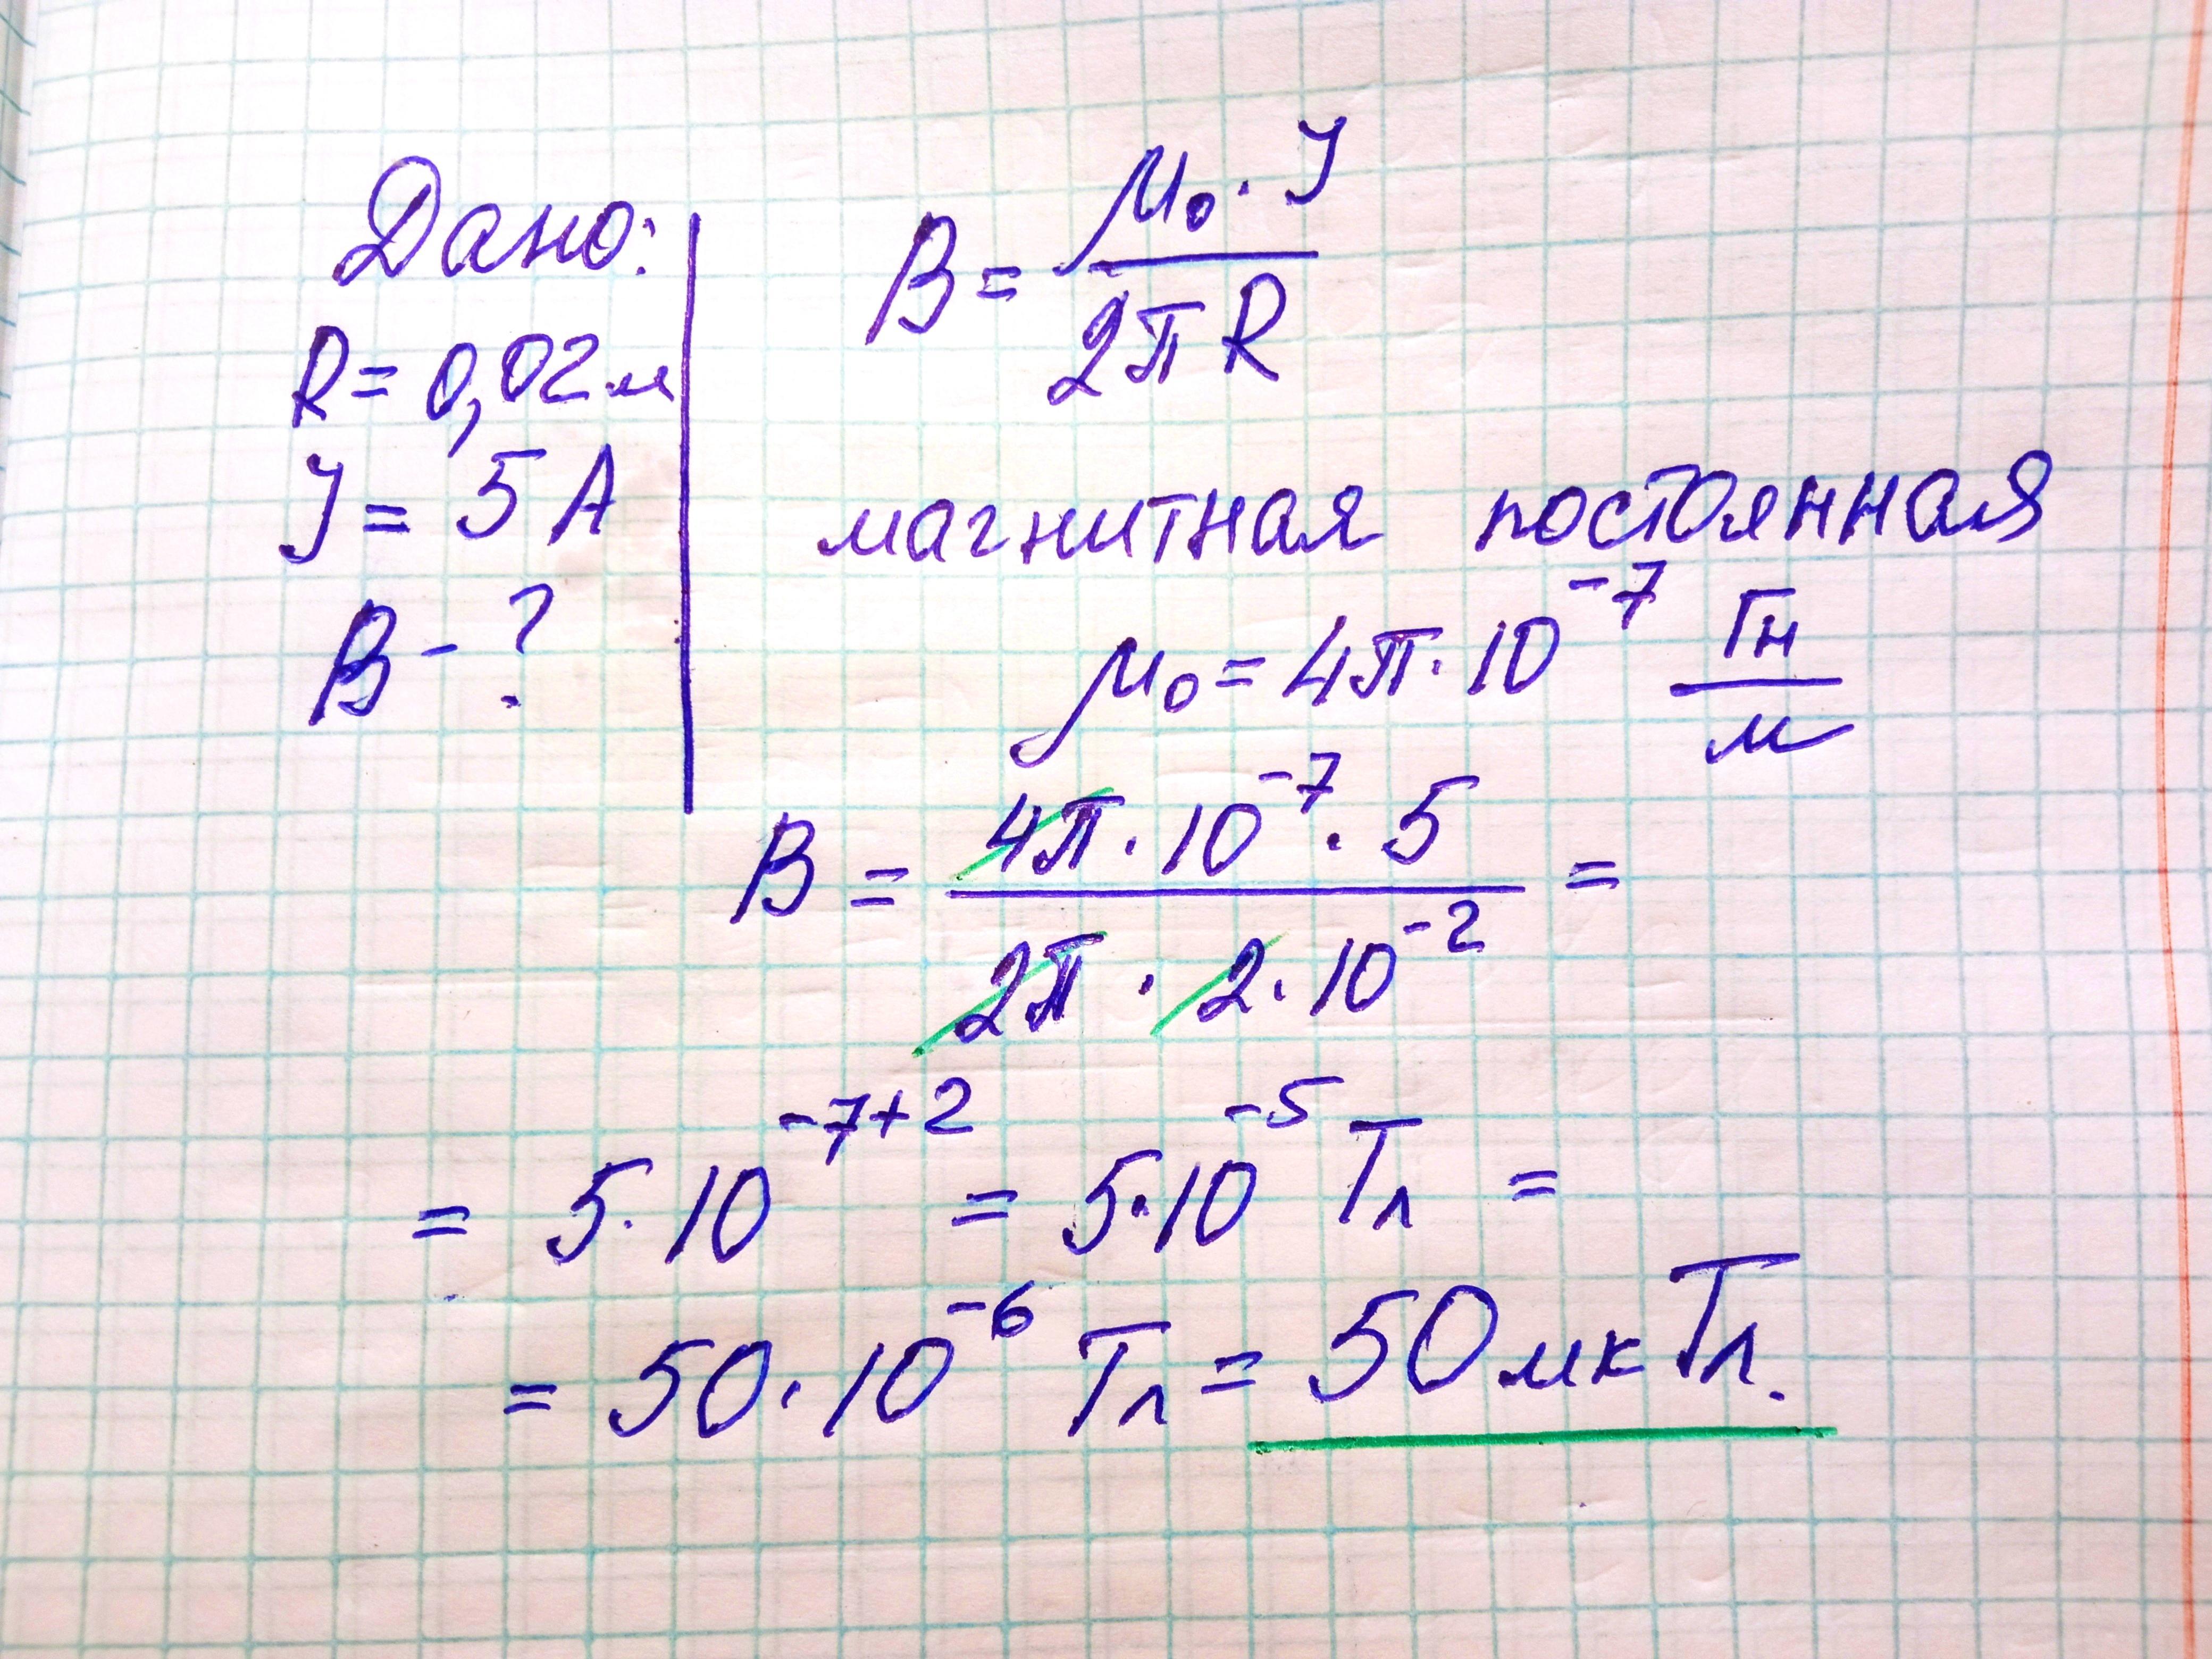 Дано:
R = 0,02 м
J = 5 А
B - ?
B = μ₀ · J / 2π R
магнитная постоянная
μ₀ = 4π · 10⁻⁷ Гн / м
B = 4π · 10⁻⁷ · 5 / 2π · 2 · 10⁻² =
= 5 · 10⁻⁷⁺² = 5 · 10⁻⁵ Тл =
= 50 · 10⁻⁶ Тл = 50 мкТл.